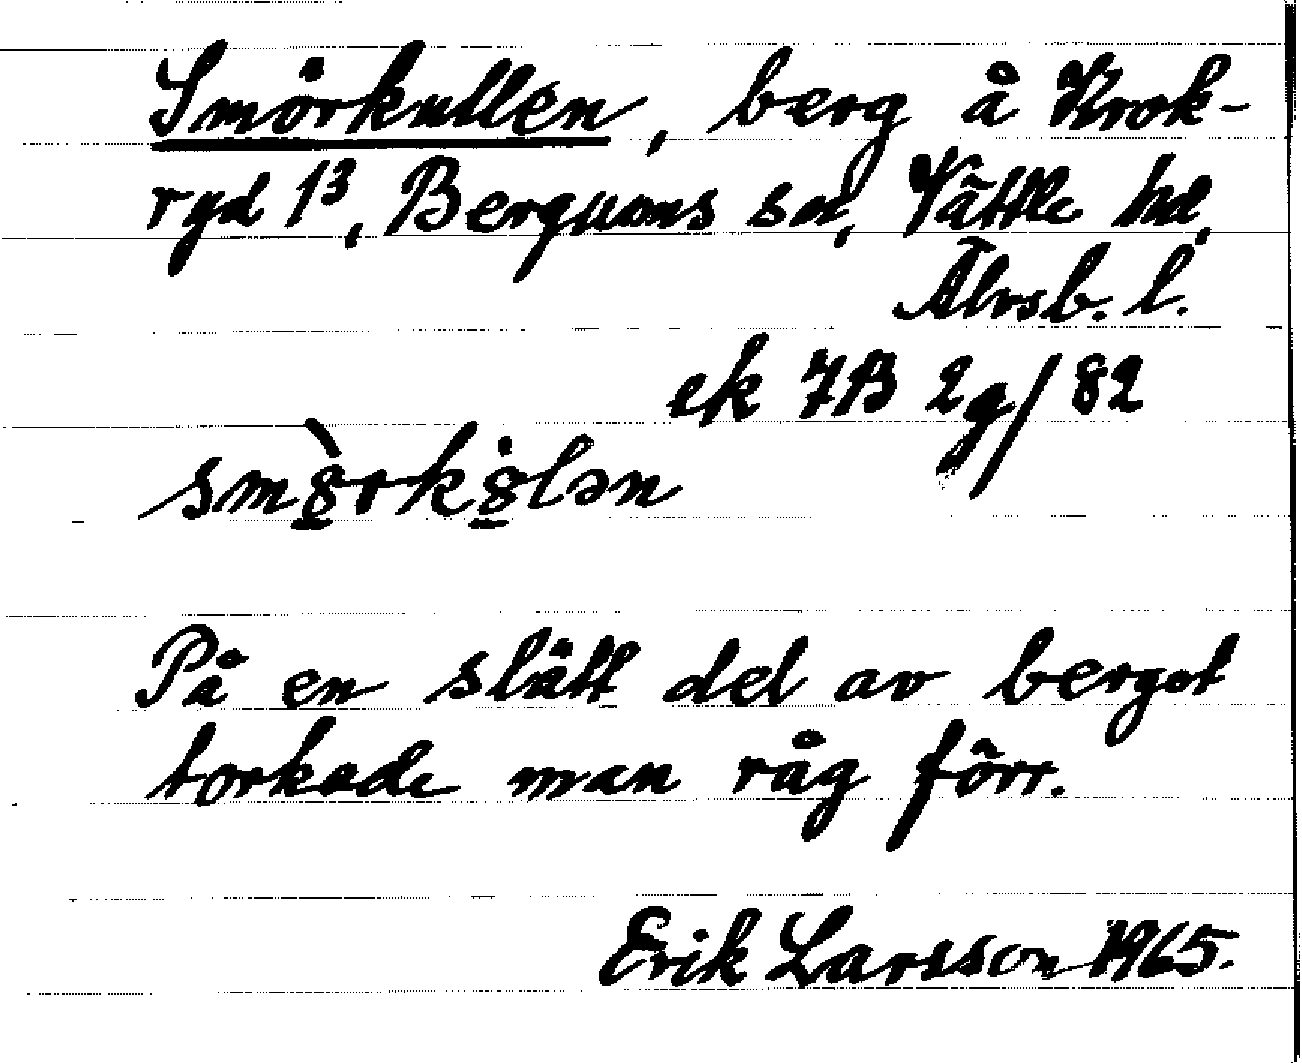 Smörkullen, berg å Krok-
ryd 1³, Bergums sn, Vättle hd,
Älvsb. l.
ek 7B 2g/82
sm8̲̀rk8̲̇lən
På en slätt del av berget
torkade man råg förr.
Erik Larsson 1965.